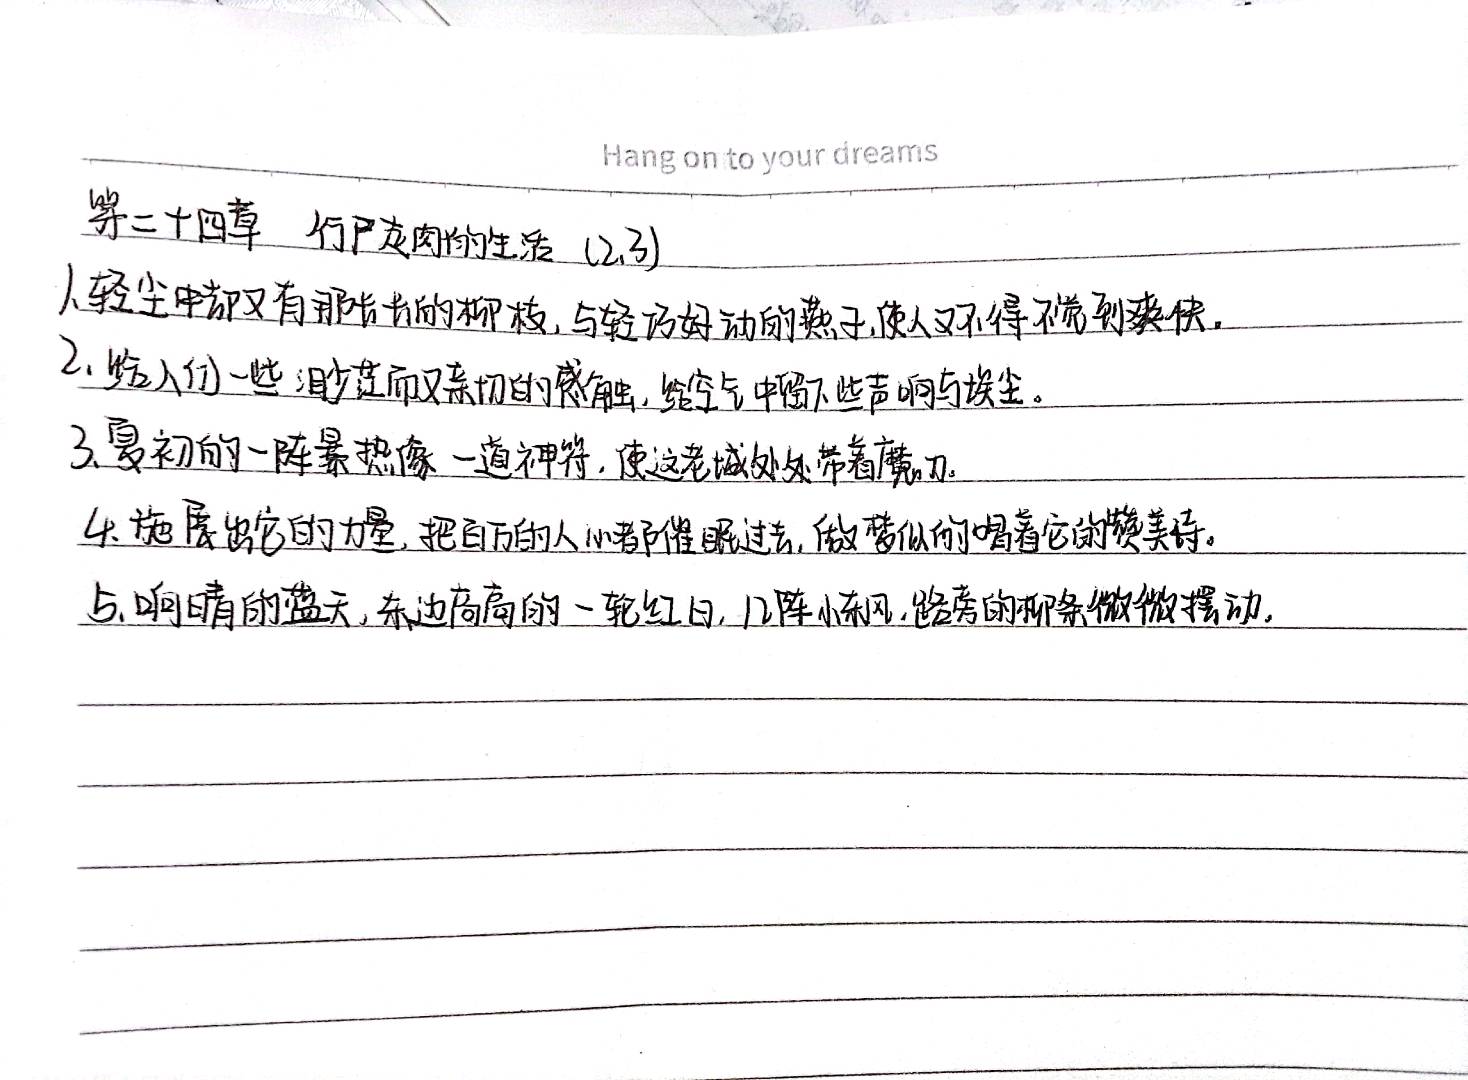 Hang on to your dreams
第二十四章 行尸走肉的生活 (2、3)
1、轻尘中却又有那长长的柳枝,与轻巧好动的燕子,使人又不得不觉到爽快。
2、给人们一些渺茫而又亲切的感触,给空气中留下些声响与埃尘。
3、夏初的一阵暴热像一道神符,使这老城处处带着魔力。
4、施展出它的力量,把百万的人心都催眠过去,做梦似的唱着它的赞美诗。
5、响晴的蓝天,东边高高的一轮红日,几阵小东风,路旁的柳条微微摆动。